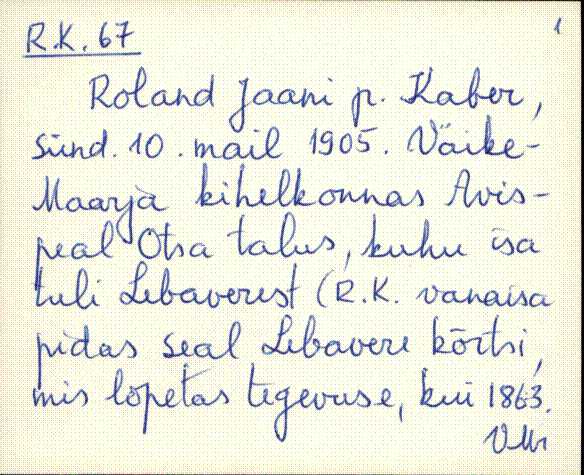 1
R.K. 67
Roland Jaani p. Kaber,
sünd. 10. mail 1905. Väike-
Maarja kihelkonnas Avis-
peal Otsa talus, kuhu isa
tuli Lebaverest (R.K. vanaisa
pidas seal Lebavere kõrtsi,
mis lõpetas tegevuse, kui 1863.